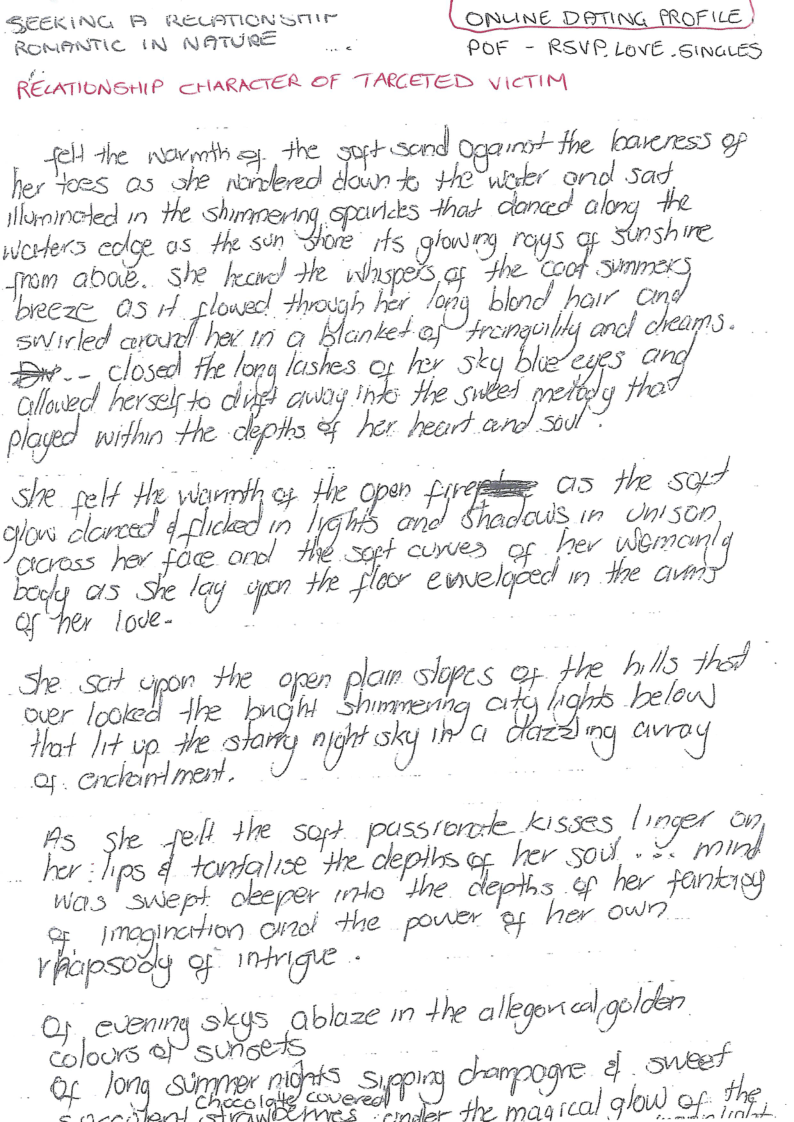 SEEKING A RELATIONSHIP
ROMANTIC IN NATURE ....
ONLINE DATING PROFILE
POF - RSVP. LOVE. SINGLES
RELATIONSHIP CHARACTER OF TARGETED VICTIM
felt the warmth of the soft sand against the bareness of
her toes as she wandered down to the water and sat
illuminated in the shimmering sparkles that danced along the
waters edge as the sun shone its glowing rays of sunshine
from above. she heard the whispers of the cool summers
breeze as it flowed through her long blond hair and
swirled around her in a blanket of tranquility and dreams.
-- closed the long lashes of her sky blue eyes and
allowed herself to drift away into the sweet melody that
played within the depths of her heart and soul.
She felt the warmth of the open fire as the soft
glow danced & flicked in lights and shadows in unison
across her face and the soft curves of her womanly
body as she lay upon the floor enveloped in the arms
of her love-
She sat upon the open plain slopes of the hills that
over looked the bright shimmering city lights below
that lit up the starry night sky in a dazzling array
of enchantment.
As she felt the soft passionate kisses linger on
her lips & tantalise the depths of her soul ... mind
was swept deeper into the depths of her fantasy
of imagination and the power of her own
rhapsody of intrigue.
Of evening skys ablaze in the allegorical golden
colours of sunsets
Of long summer nights sipping champagne & sweet
chocolate covered
succulent strawberries under the magical glow of the